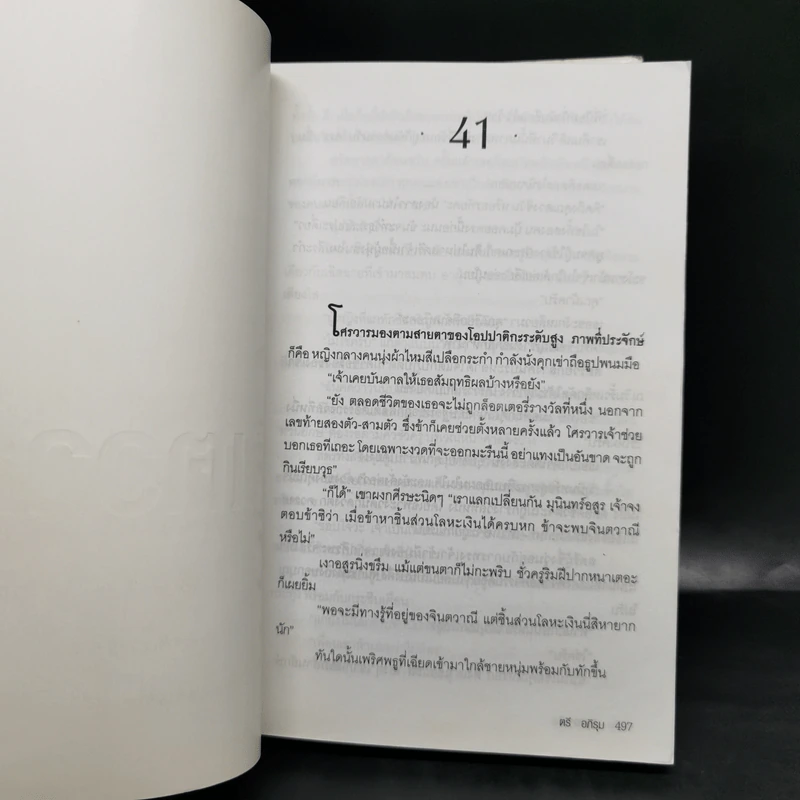 41
โศรวารมองตามสายตาของโอปปาติกะระดับสูง ภาพที่ประจักษ์
ก็คือ หญิงกลางคนนุ่งผ้าไหมสีเปลือกระกำ กำลังนั่งคุกเข่าถือธูปพนมมือ
“เจ้าเคยบันดาลให้เธอสัมฤทธิผลบ้างหรือยัง”
“ยัง ตลอดชีวิตของเธอจะไม่ถูกล็อตเตอรี่รางวัลที่หนึ่ง นอกจาก
เลขท้ายสองตัว-สามตัว ซึ่งข้าก็เคยช่วยตั้งหลายครั้งแล้ว โศรวารเจ้าช่วย
บอกเธอทีเถอะ โดยเฉพาะงวดที่จะออกมะรืนนี้ อย่าแทงเป็นอันขาด จะถูก
กินเรียบวุธ”
“ก็ได้” เขาผงกศีรษะนิดๆ “เราแลกเปลี่ยนกัน มุนินทร์อสูร เจ้าจง
ตอบข้าซิว่า เมื่อข้าหาชิ้นส่วนโลหะเงินได้ครบหก ข้าจะพบจินตวาณี
หรือไม่”
เงาอสูรนิ่งขรึม แม้แต่ขนตาก็ไม่กะพริบ ชั่วครู่ริมฝีปากหนาเตอะ
ก็เผยยิ้ม
“พอจะมีทางรู้ที่อยู่ของจินตวาณี แต่ชิ้นส่วนโลหะเงินนี่สิหายาก
นัก”
ทันใดนั้นเพริศพธูที่เฉียดเข้ามาใกล้ชายหนุ่มพร้อมกับทักขึ้น
ตรี อภิรุม 497